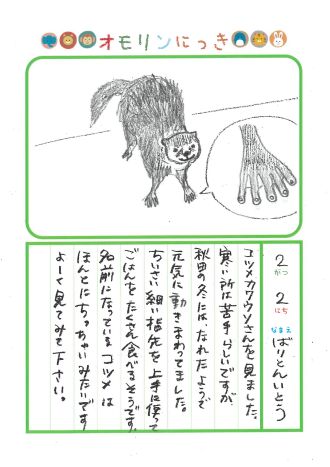 オモリンにっき
2がつ 2にち なまえ ばりとんいとう
コツメカワウソさんを見ました。
寒い所は苦手らしいですが
秋田の冬には、なれたようで
元気に動きまわってました。
ちいさい細い指先を上手に使って
ごはんをたくさん食べるそうです。
名前になっているコツメは
ほんとにちっちゃいみたいです
よーく見てみて下さい。